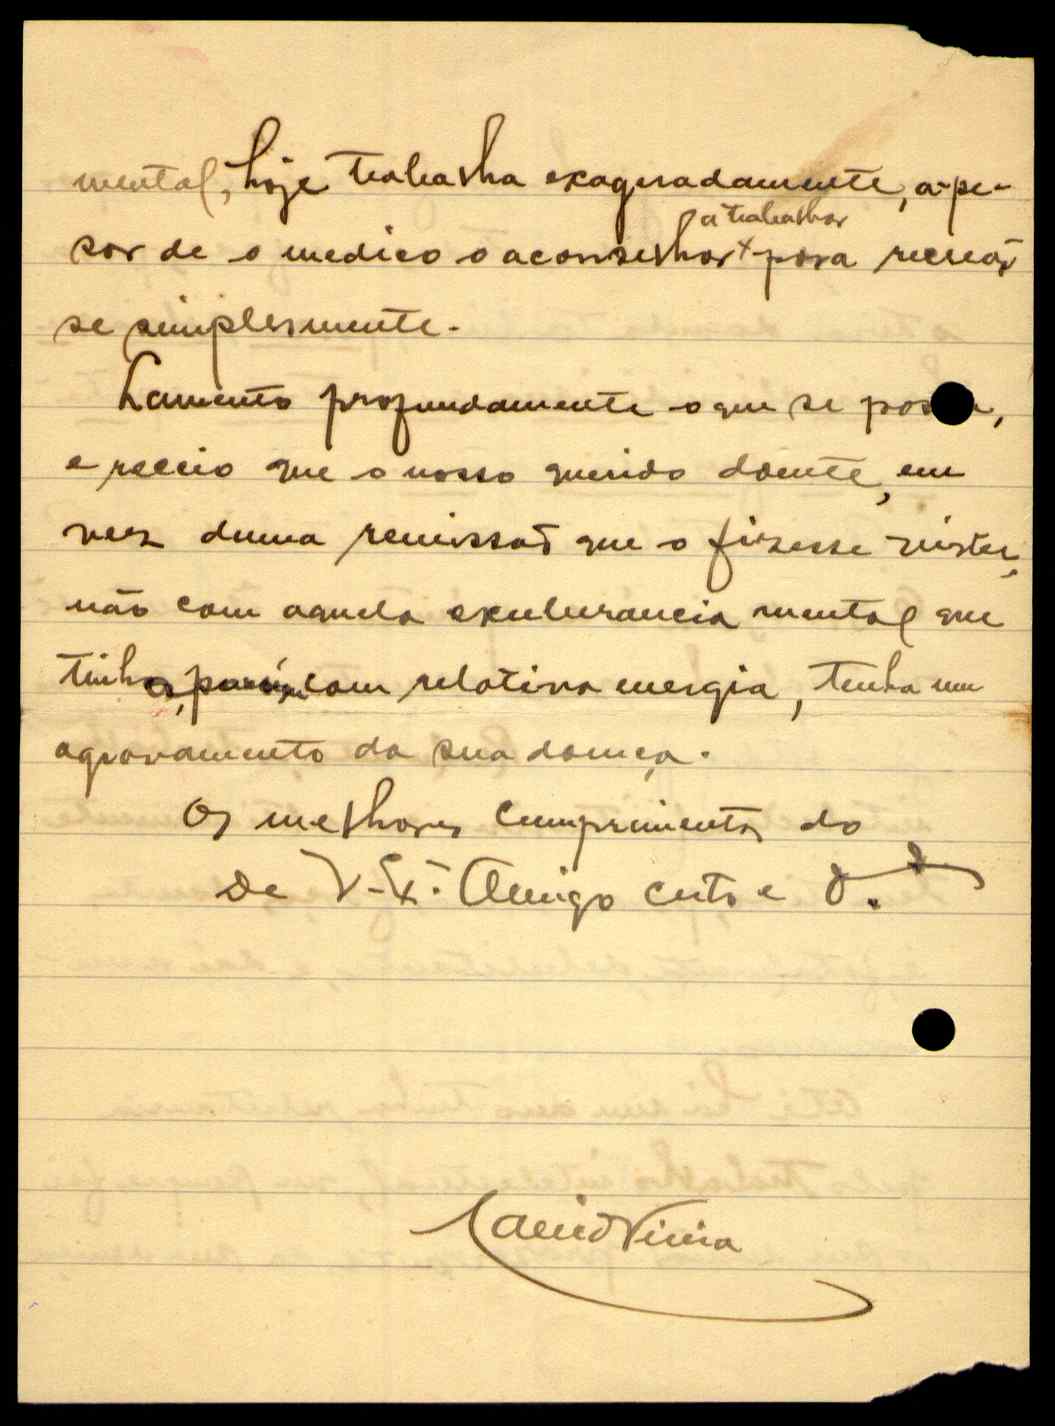 mental, hoje trabalha exageradamente, a-pe-
sar de o medico o aconselhar a trabalhar para recrear
se simplesmente.
Lamento profundamente o que se passa,
e receio que o nosso querido doente, em
vez duma remissão que o fizesse
não com aquela exuberancia mental que
tinha, porém com relativa energia, tenha um
agravamento da sua doença.
Os melhores cumprimentos do
De V. Ex.ª Amigo certo e
David Vieira